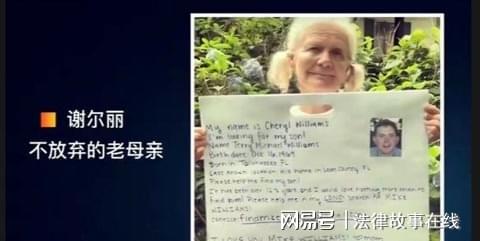 谢尔丽
不放弃的老母亲
My name is Cheryl Williams
I'm looking for my son!
Name Terry Michael Williams
Birth date: Oct 16, 1969
Born in Tallahassee FL
Last known location his home in Leon County FL
Please help me find my son!
It has been over 12 ½ years and I would love nothing more than to
find him! Please help me in my LONG search for MIKE
WILLIAMS!
网易号 | 法律故事在线
I LOVE YOU MIKE WILLIAMS